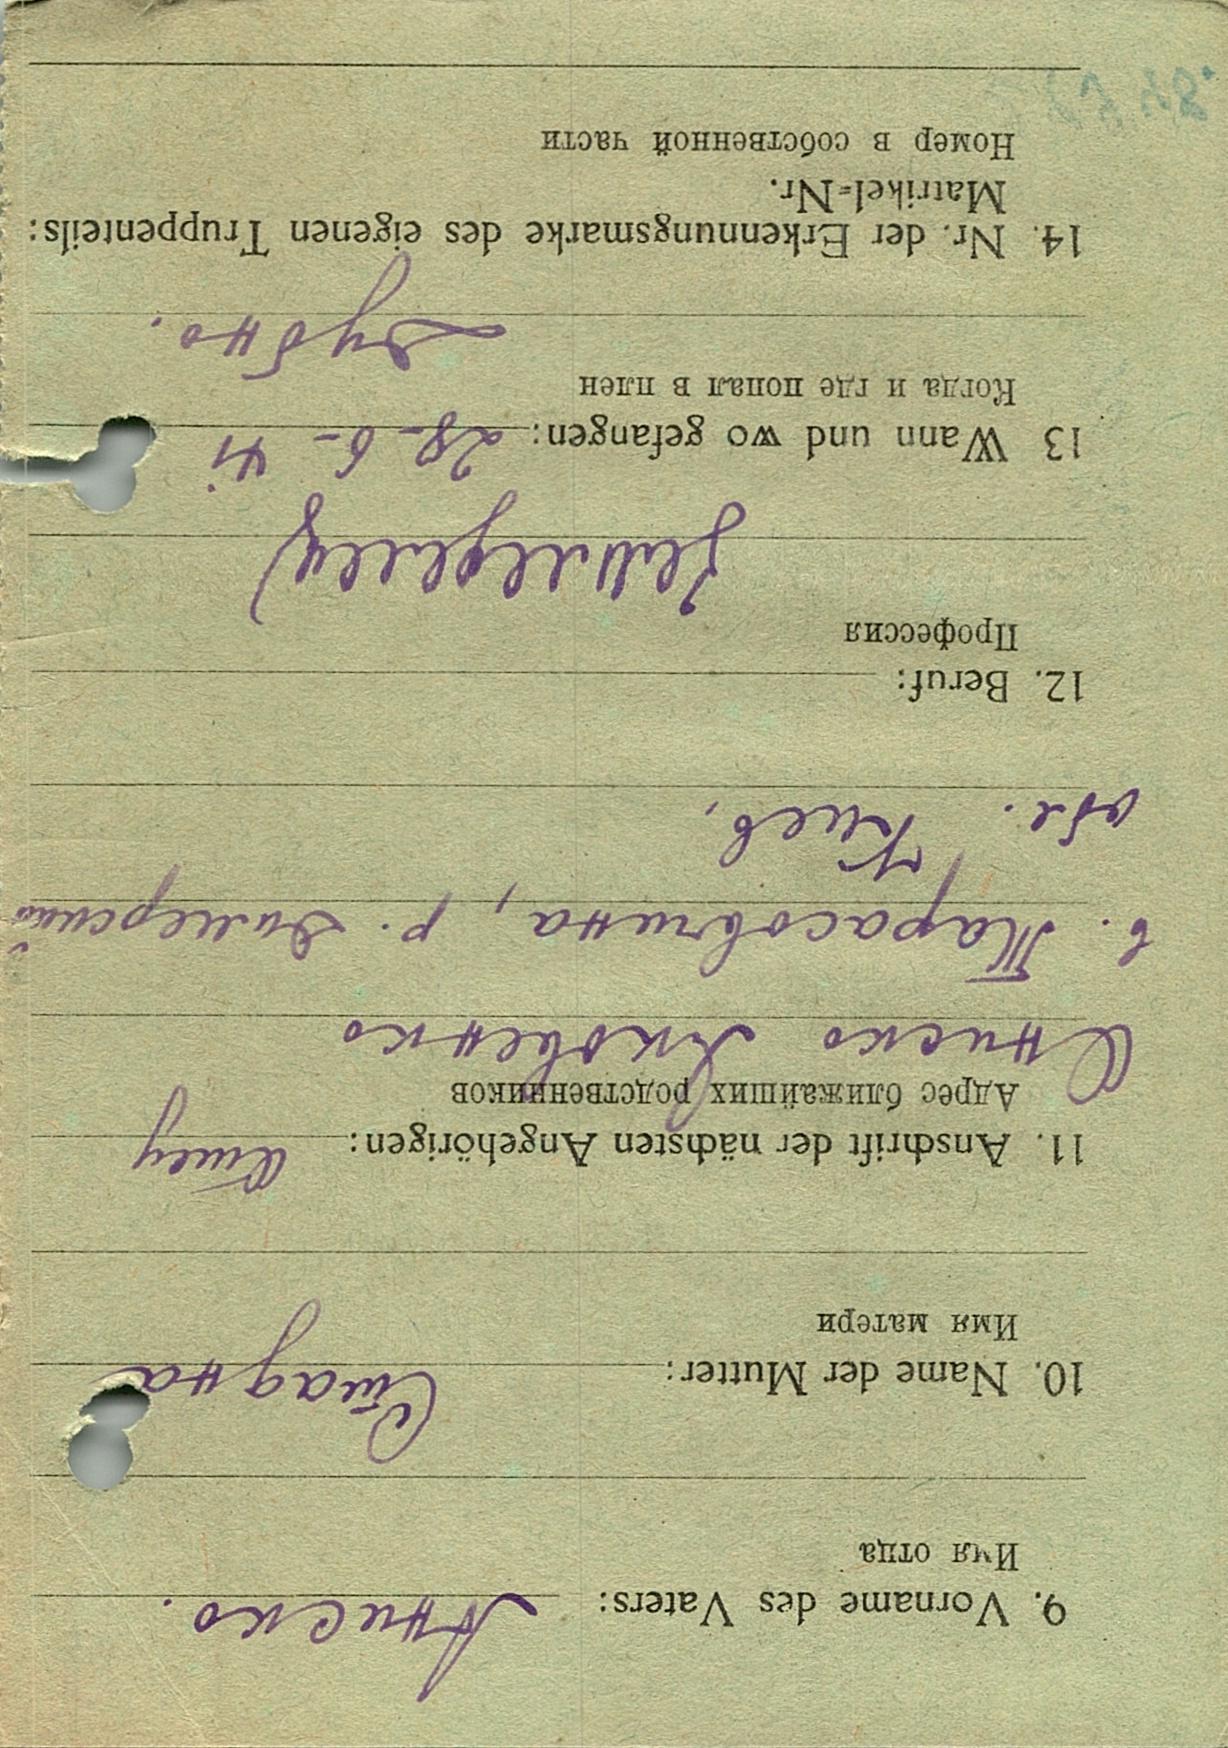 9. Vorname des Vaters: Аниско.
Имя отца
10. Name der Mutter:
Имя матери
11. Anschrift der nächsten Angehörigen: Отец
Адрес ближайших родственников
Аниско Яковенко
с. Тарасовчина, р. Димерский
обл. Киев,
12. Beruf:
Профессия
земледелец
13 Wann und wo gefangen: 28-6-41
Когда и где попал в плен
Дубно.
14. Nr. der Erkennungsmarke des eigenen Truppenteils:
Matrikel=Nr.
Номер в собственной части